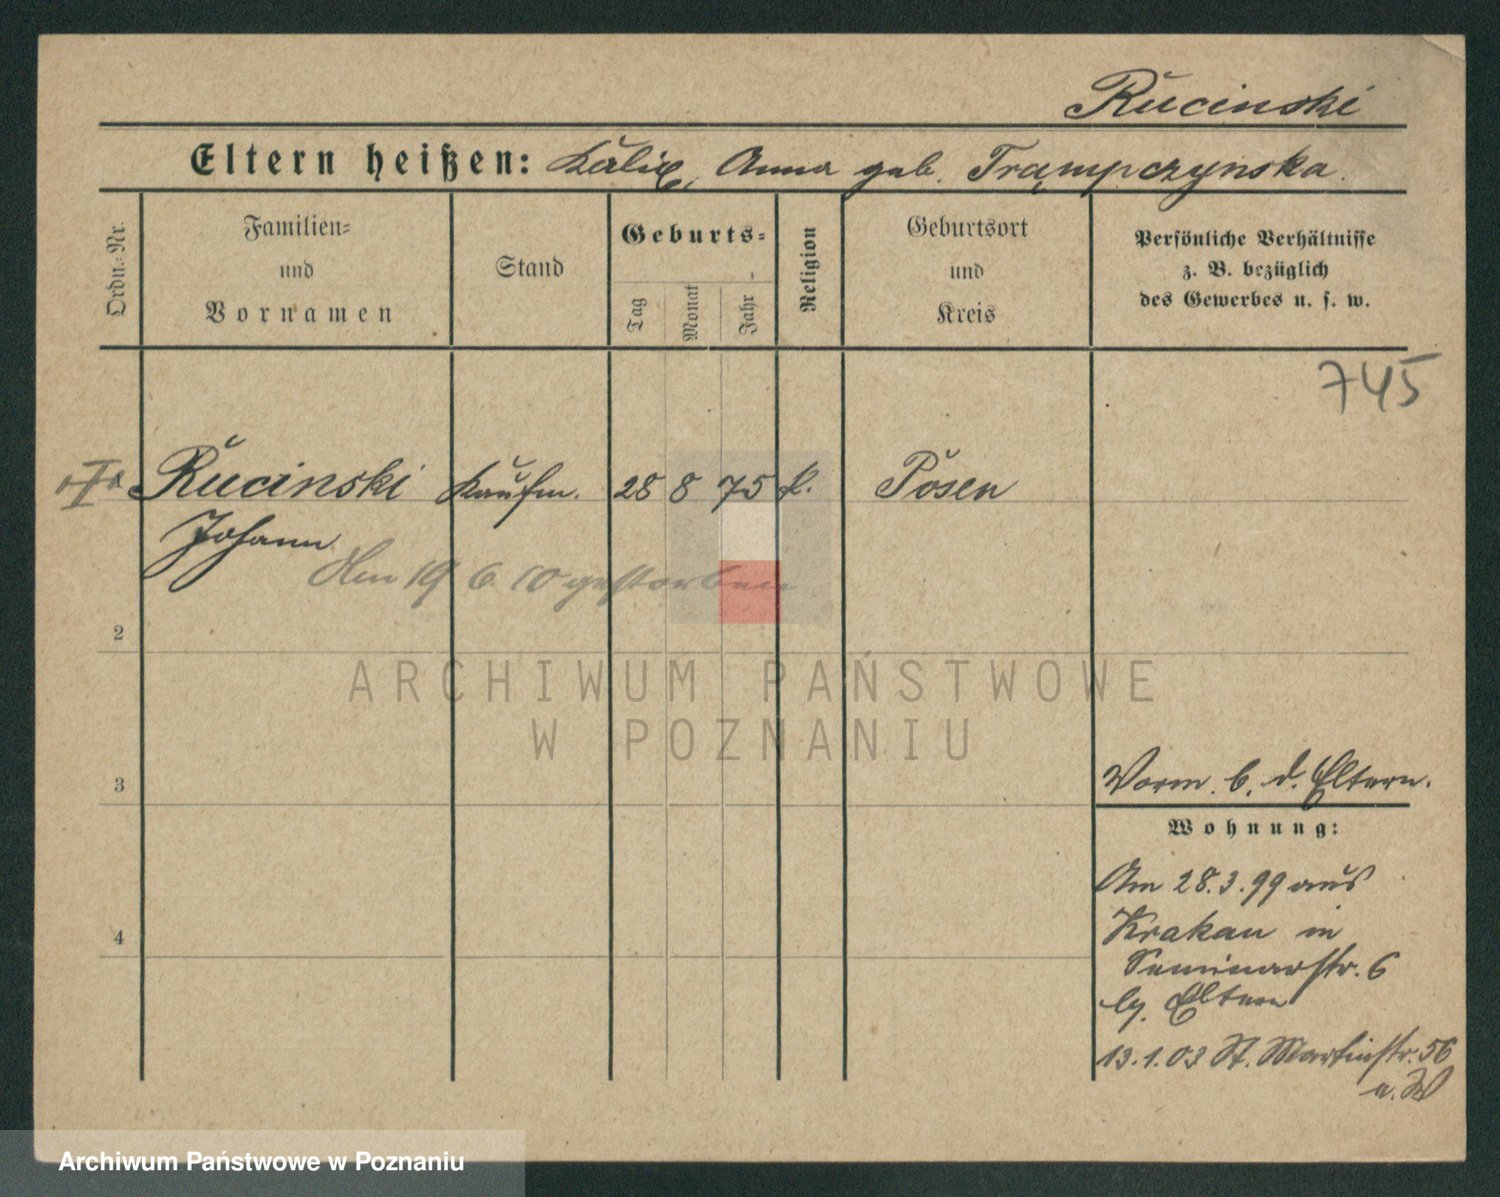 Rucinski
Eltern heißen: Anna geb. Trąmpczynska.
Ordn.-Nr.
Familien-
und
Vornamen
Stand
Geburts-
Tag
Monat
Jahr
Religion
Geburtsort
und
Kreis
Persönliche Verhältnisse
z. B. bezüglich
des Gewerbes u. s. w.
745
Rucinski Kaufm. 28 8 75 k. Posen
Johann
Am 19 6 10 gestorben
2
ARCHIWUM PAŃSTWOWE
W POZNANIU
3
Vorm. b. d. Eltern.
Wohnung:
Am 28.3.99 aus
Krakau in
4
Seminarstr. 6
Eltern
13.1.03 St. Martinstr. 56
Archiwum Państwowe w Poznaniu